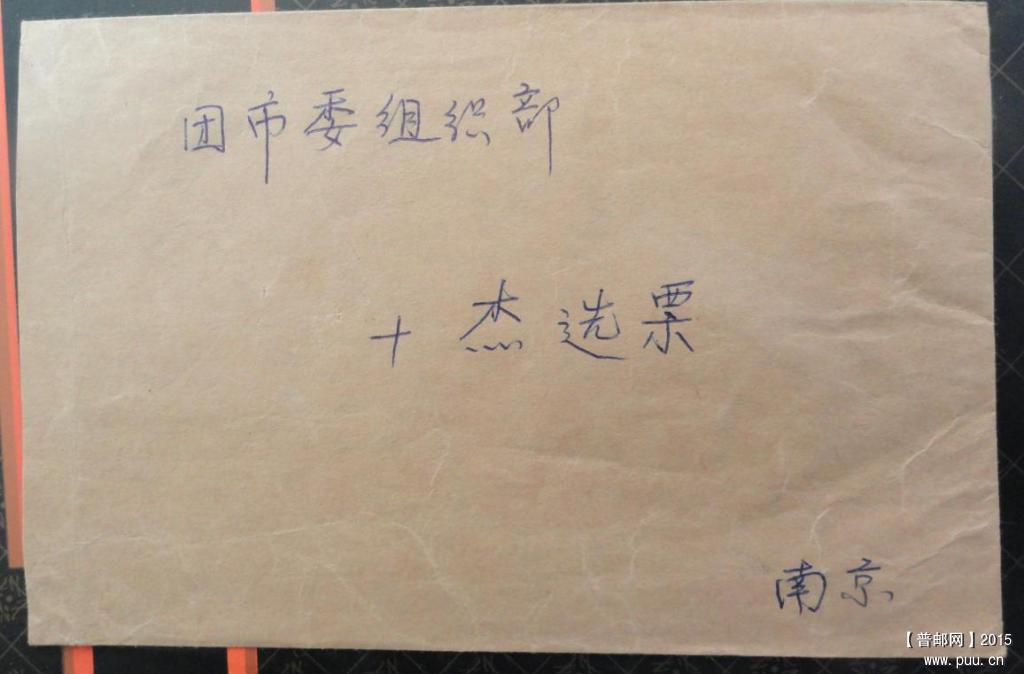 团市委组织部
十杰选票
南京
【普邮网】2015
www.puu.cn